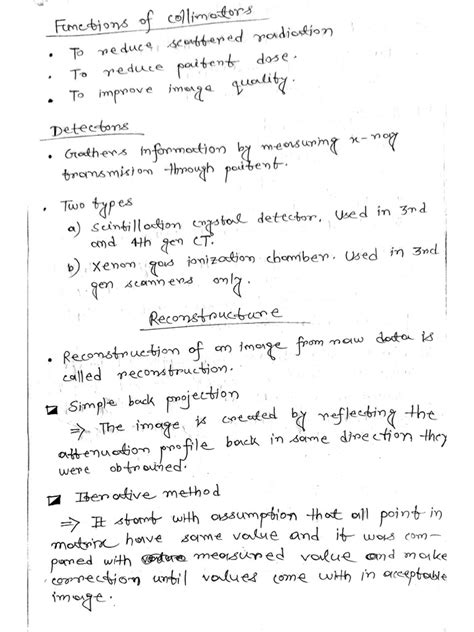 Functions of collimators
• To reduce scattered radiation
• To reduce paitent dose.
• To improve image quality.
Detectors
• Gathers information by measuring x-ray
transmision through paitent.
• Two types
a) scintillation crystal detector. Used in 3rd
and 4th gen CT.
b) Xenon gas ionization chamber. Used in 3rd
gen scanners only.
Reconstructure
• Reconstruction of an image from raw data is
called reconstruction.
Simple back projection
⇒ The image is created by reflecting the
attenuation profile back in same direction they
were obtrained.
Iterative method
⇒ It start with assumption that all point in
matrix have same value and it was com-
pared with measured value and make
correction until values come with in acceptable
image.